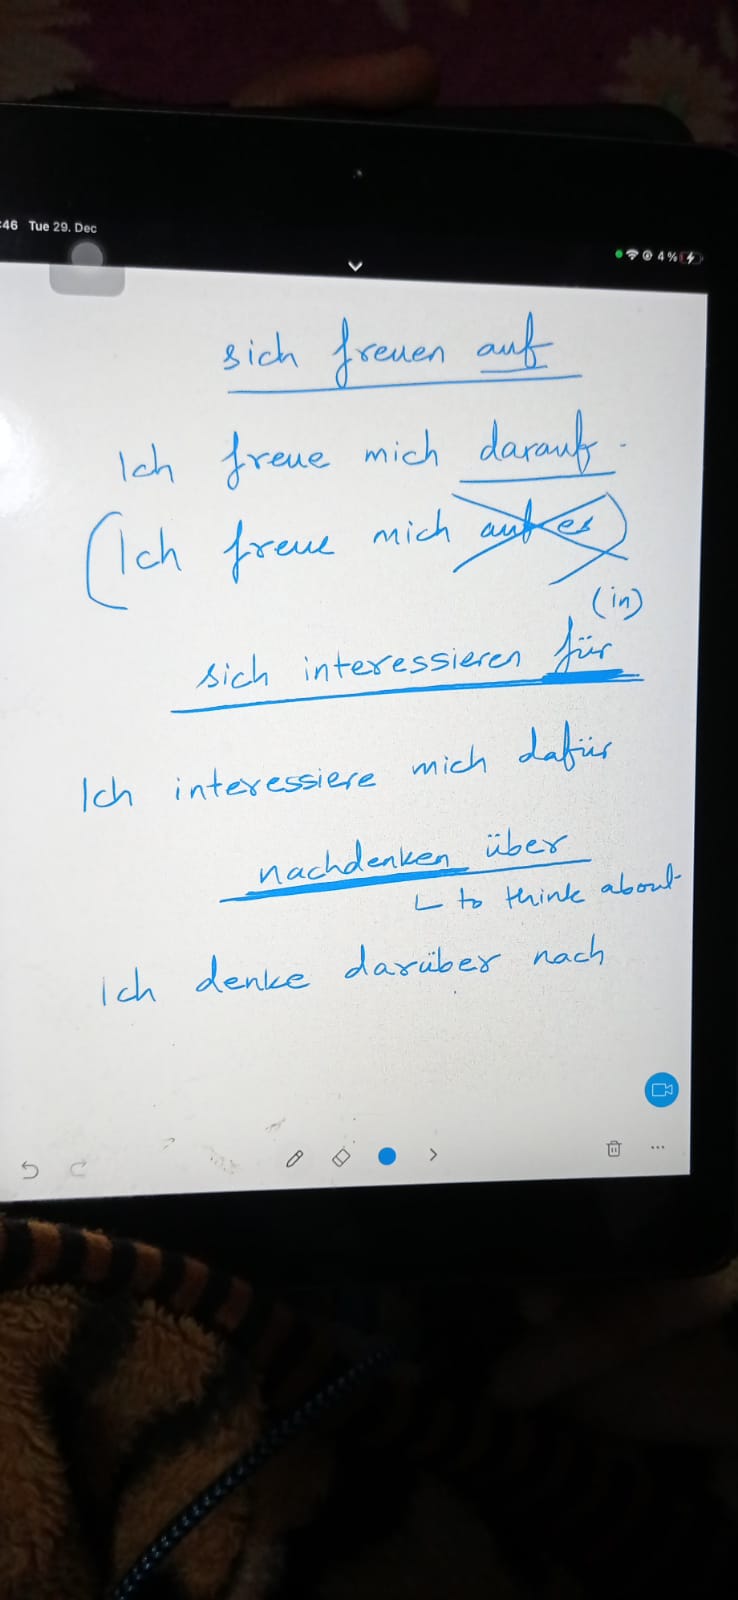 :46 Tue 29. Dec
4%
sich freuen auf
Ich freue mich darauf.
(Ich freue mich auf es)
(in)
sich interessieren für
Ich interessiere mich dafür
nachdenken über
to think about
Ich denke darüber nach